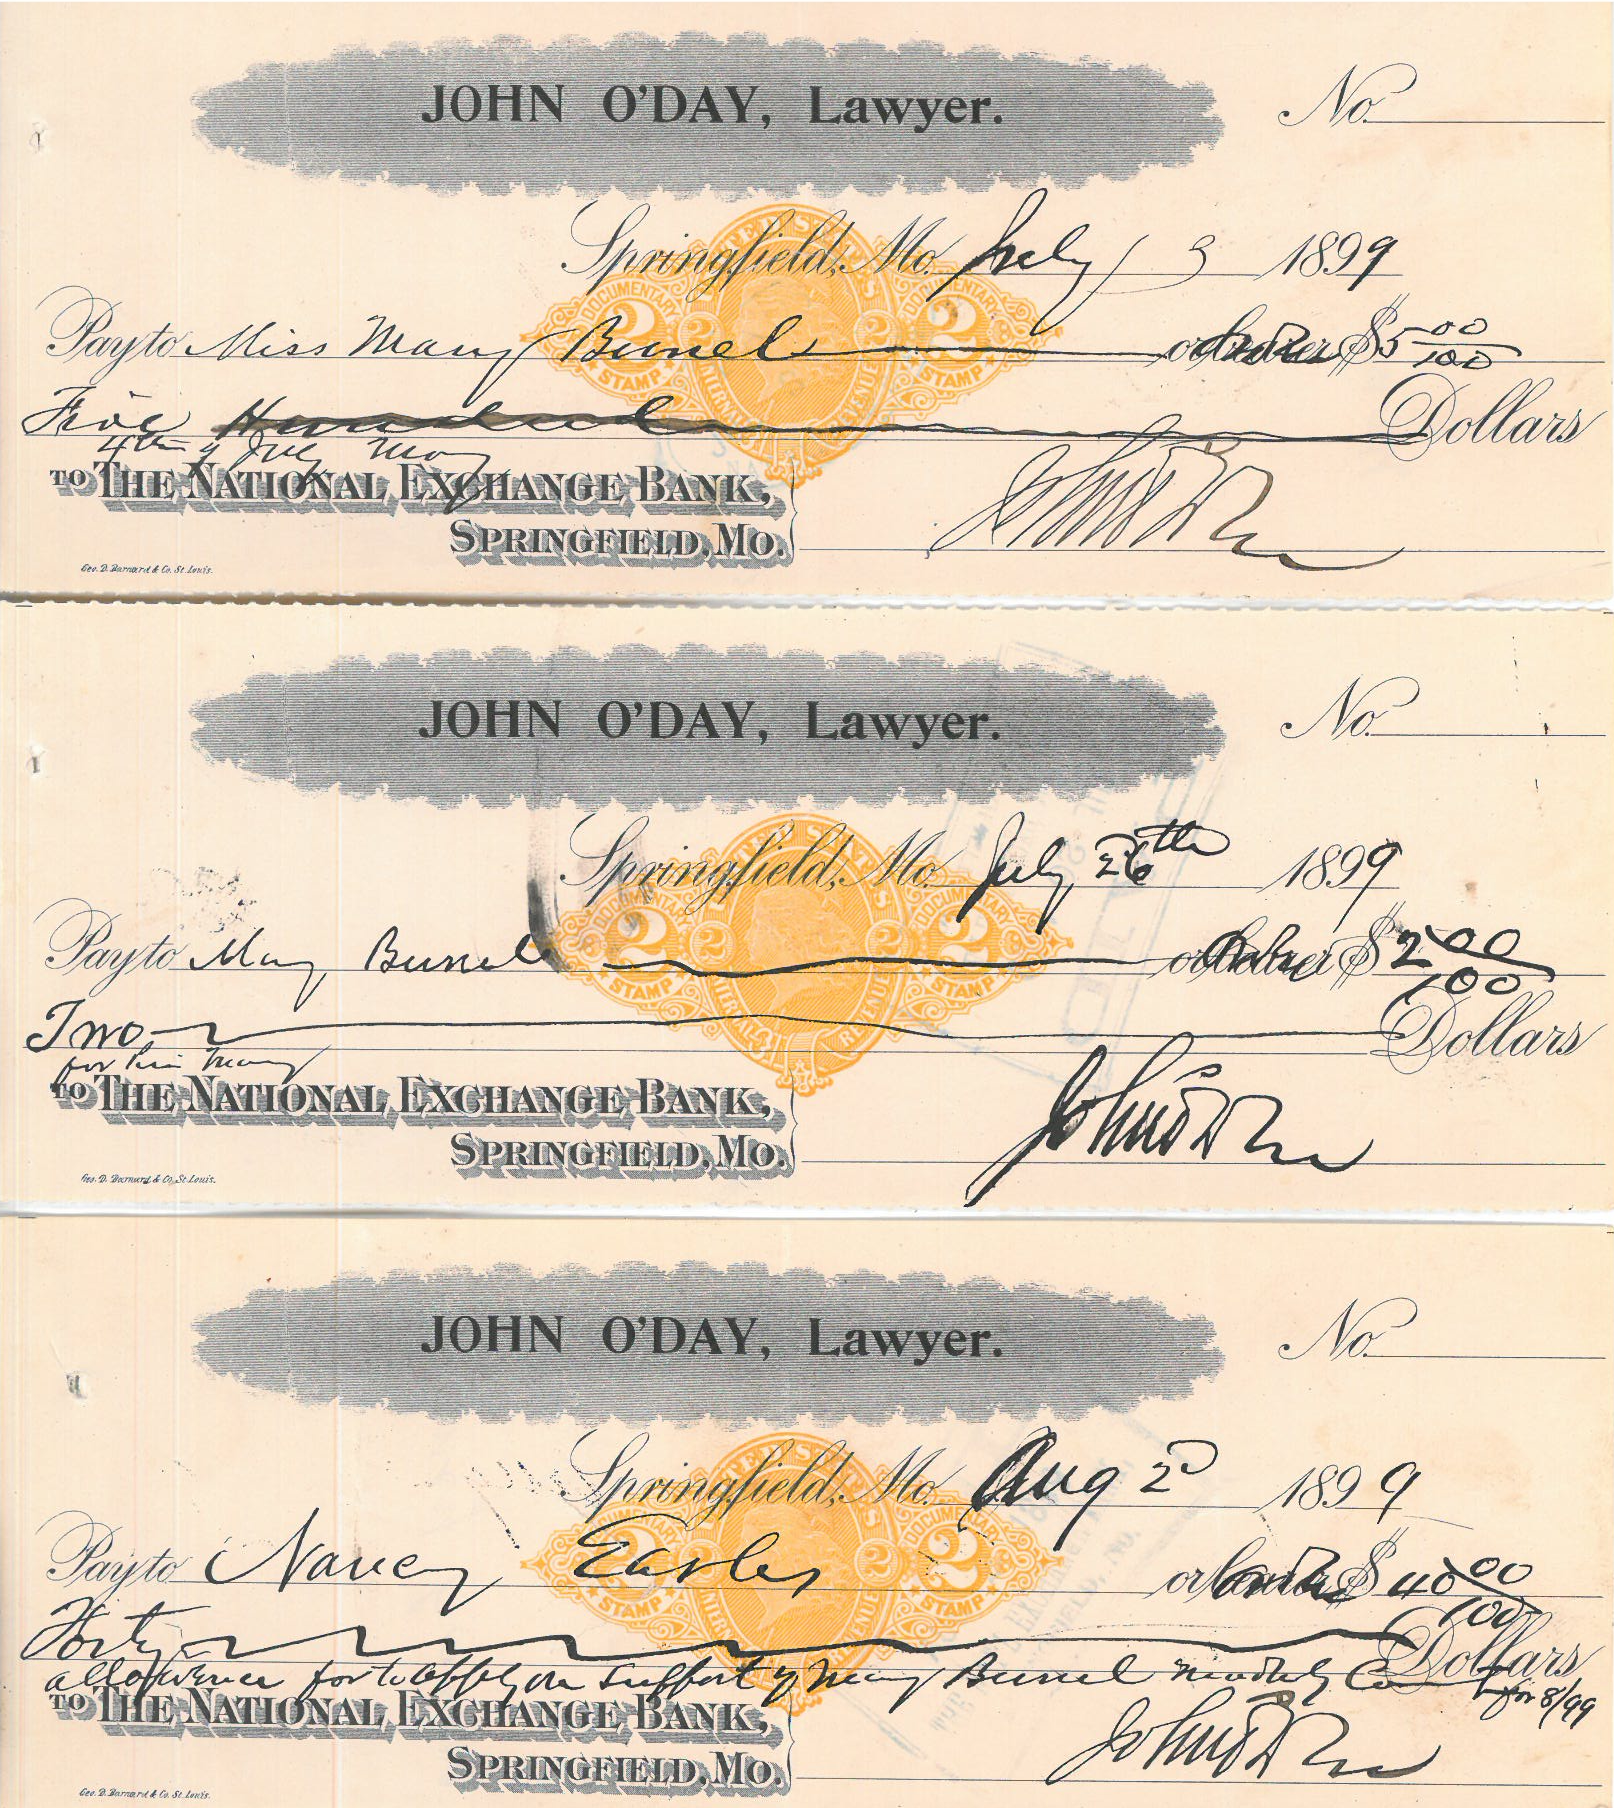 JOHN O'DAY, Lawyer.
No.
Springfield, Mo. July 3 1899
Pay to Miss Mary Bunel or order $5 00/100
Five Dollars
4th of July
TO THE NATIONAL EXCHANGE BANK,
SPRINGFIELD, MO.
Geo. D. Barnard & Co. St. Louis.
JOHN O'DAY, Lawyer.
No.
Springfield, Mo. July 26th 1899
Pay to Mary Bunel or $2 00/100
Two Dollars
for Pin Money
TO THE NATIONAL EXCHANGE BANK,
SPRINGFIELD, MO.
Geo. D. Barnard & Co. St. Louis.
JOHN O'DAY, Lawyer.
No.
Springfield, Mo. Aug 2 1899
Pay to Nancy Easley or $40 00/100
Forty Dollars
allowance for to apply on support of Mary Bunel for 8/99
TO THE NATIONAL EXCHANGE BANK,
SPRINGFIELD, MO.
Geo. D. Barnard & Co. St. Louis.
UNITED STATES
DOCUMENTARY
STAMP
INTERNAL REVENUE
2